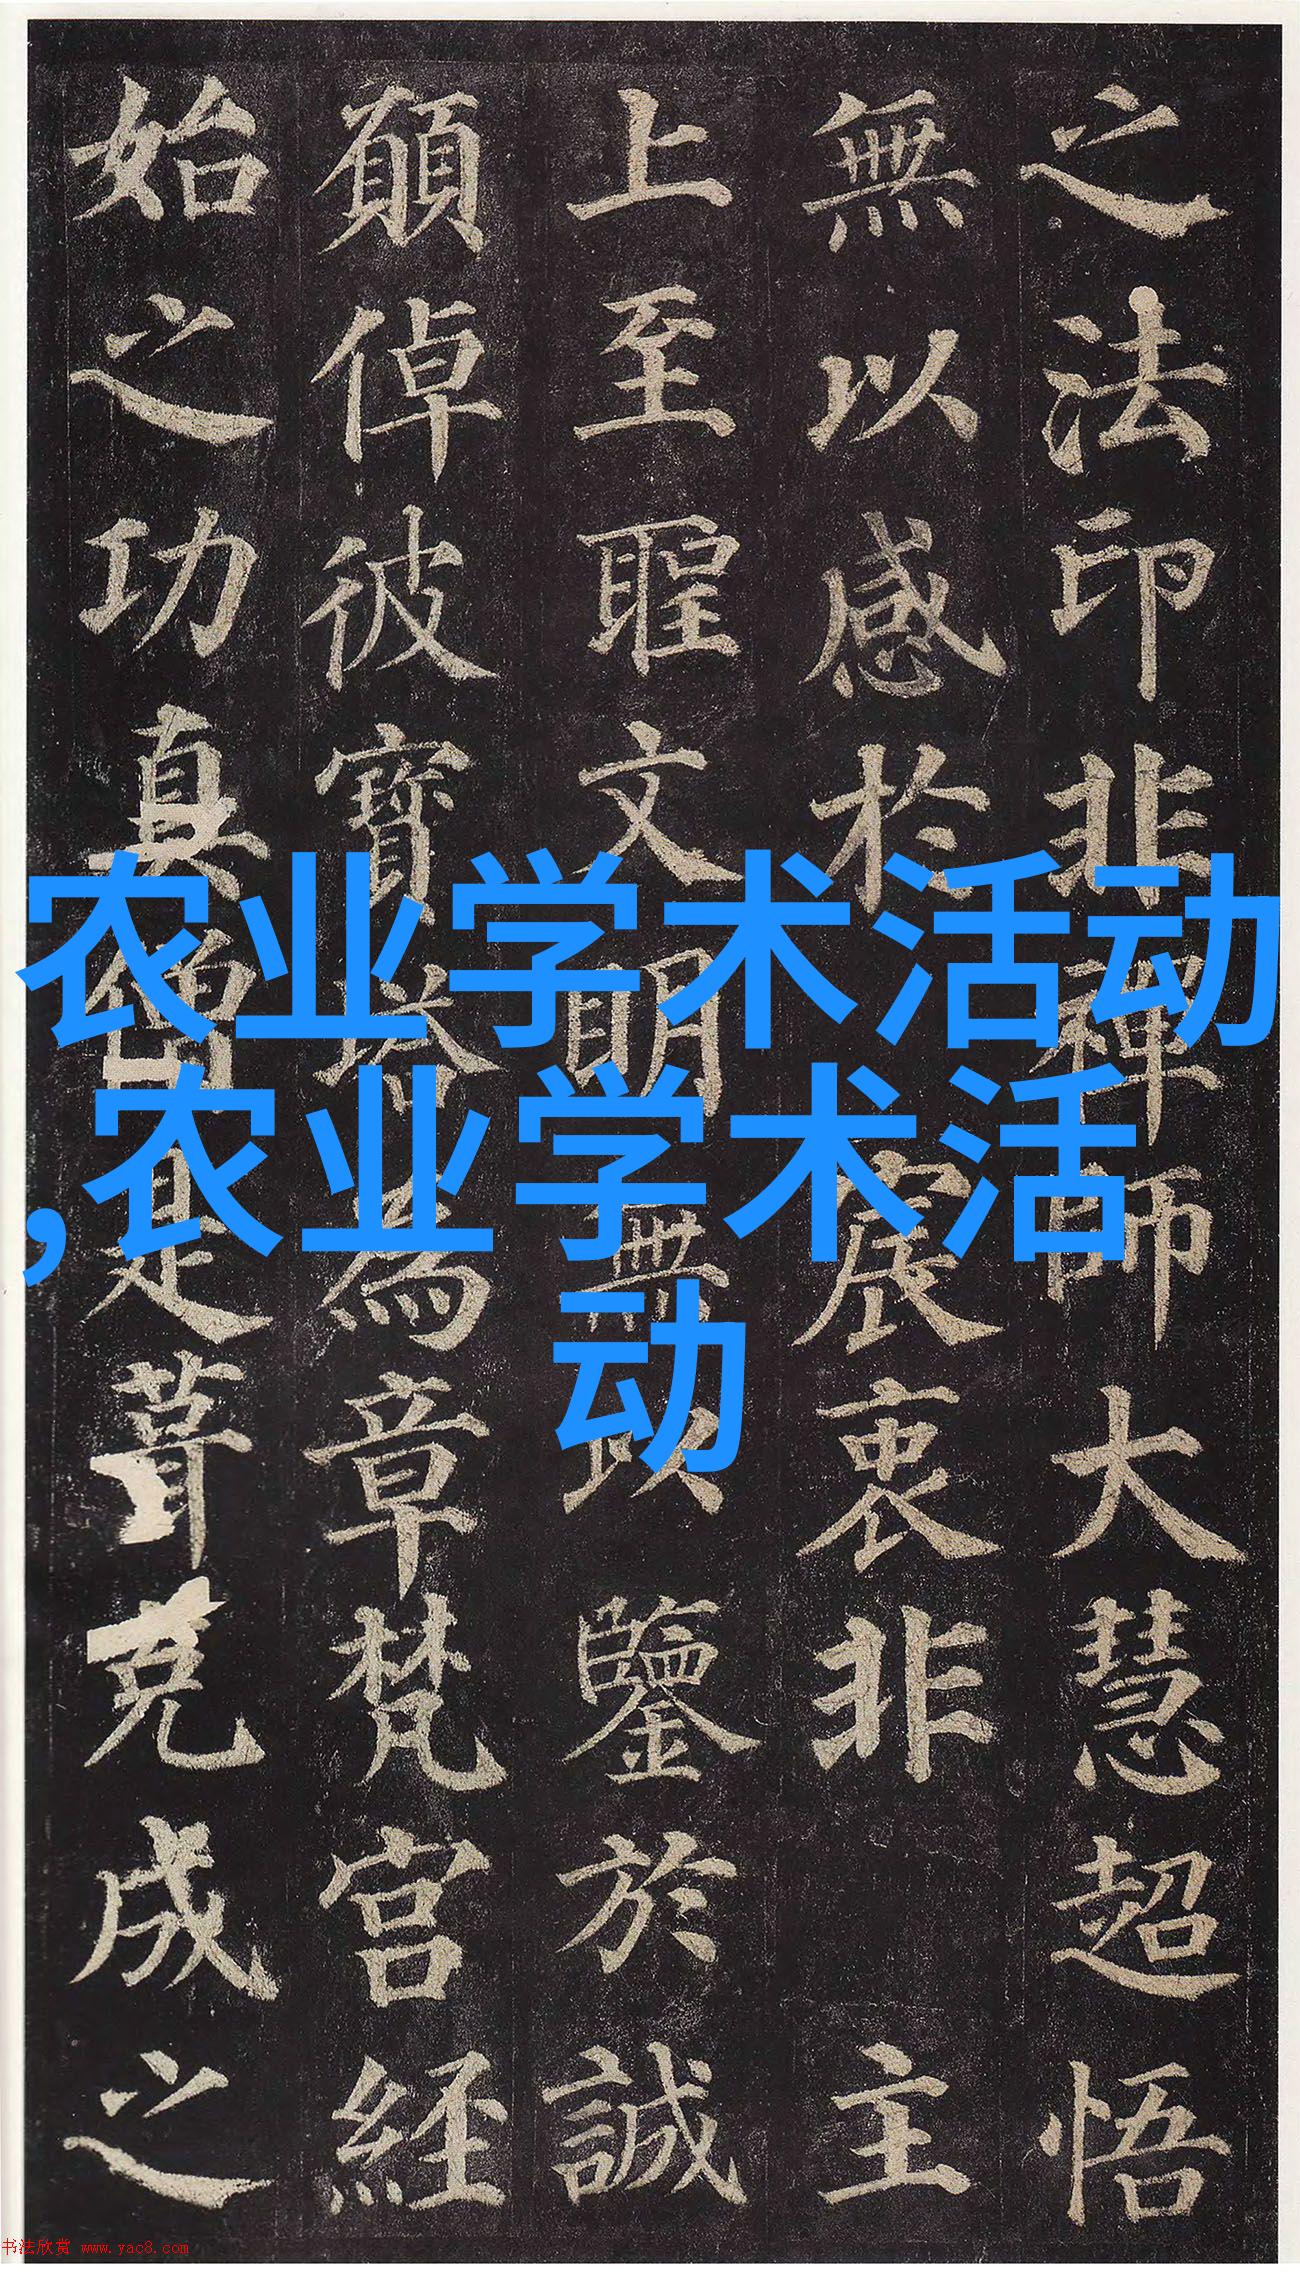 之法印非禪師大慧超悟
無以感於宸衷非主
上至聖文明無以鑒於誠
願倬彼寶塔為章梵宮經
始之功真僧是葺克成之
农业学术活动
,农业学术活
动
书法欣赏 www.yac8.com